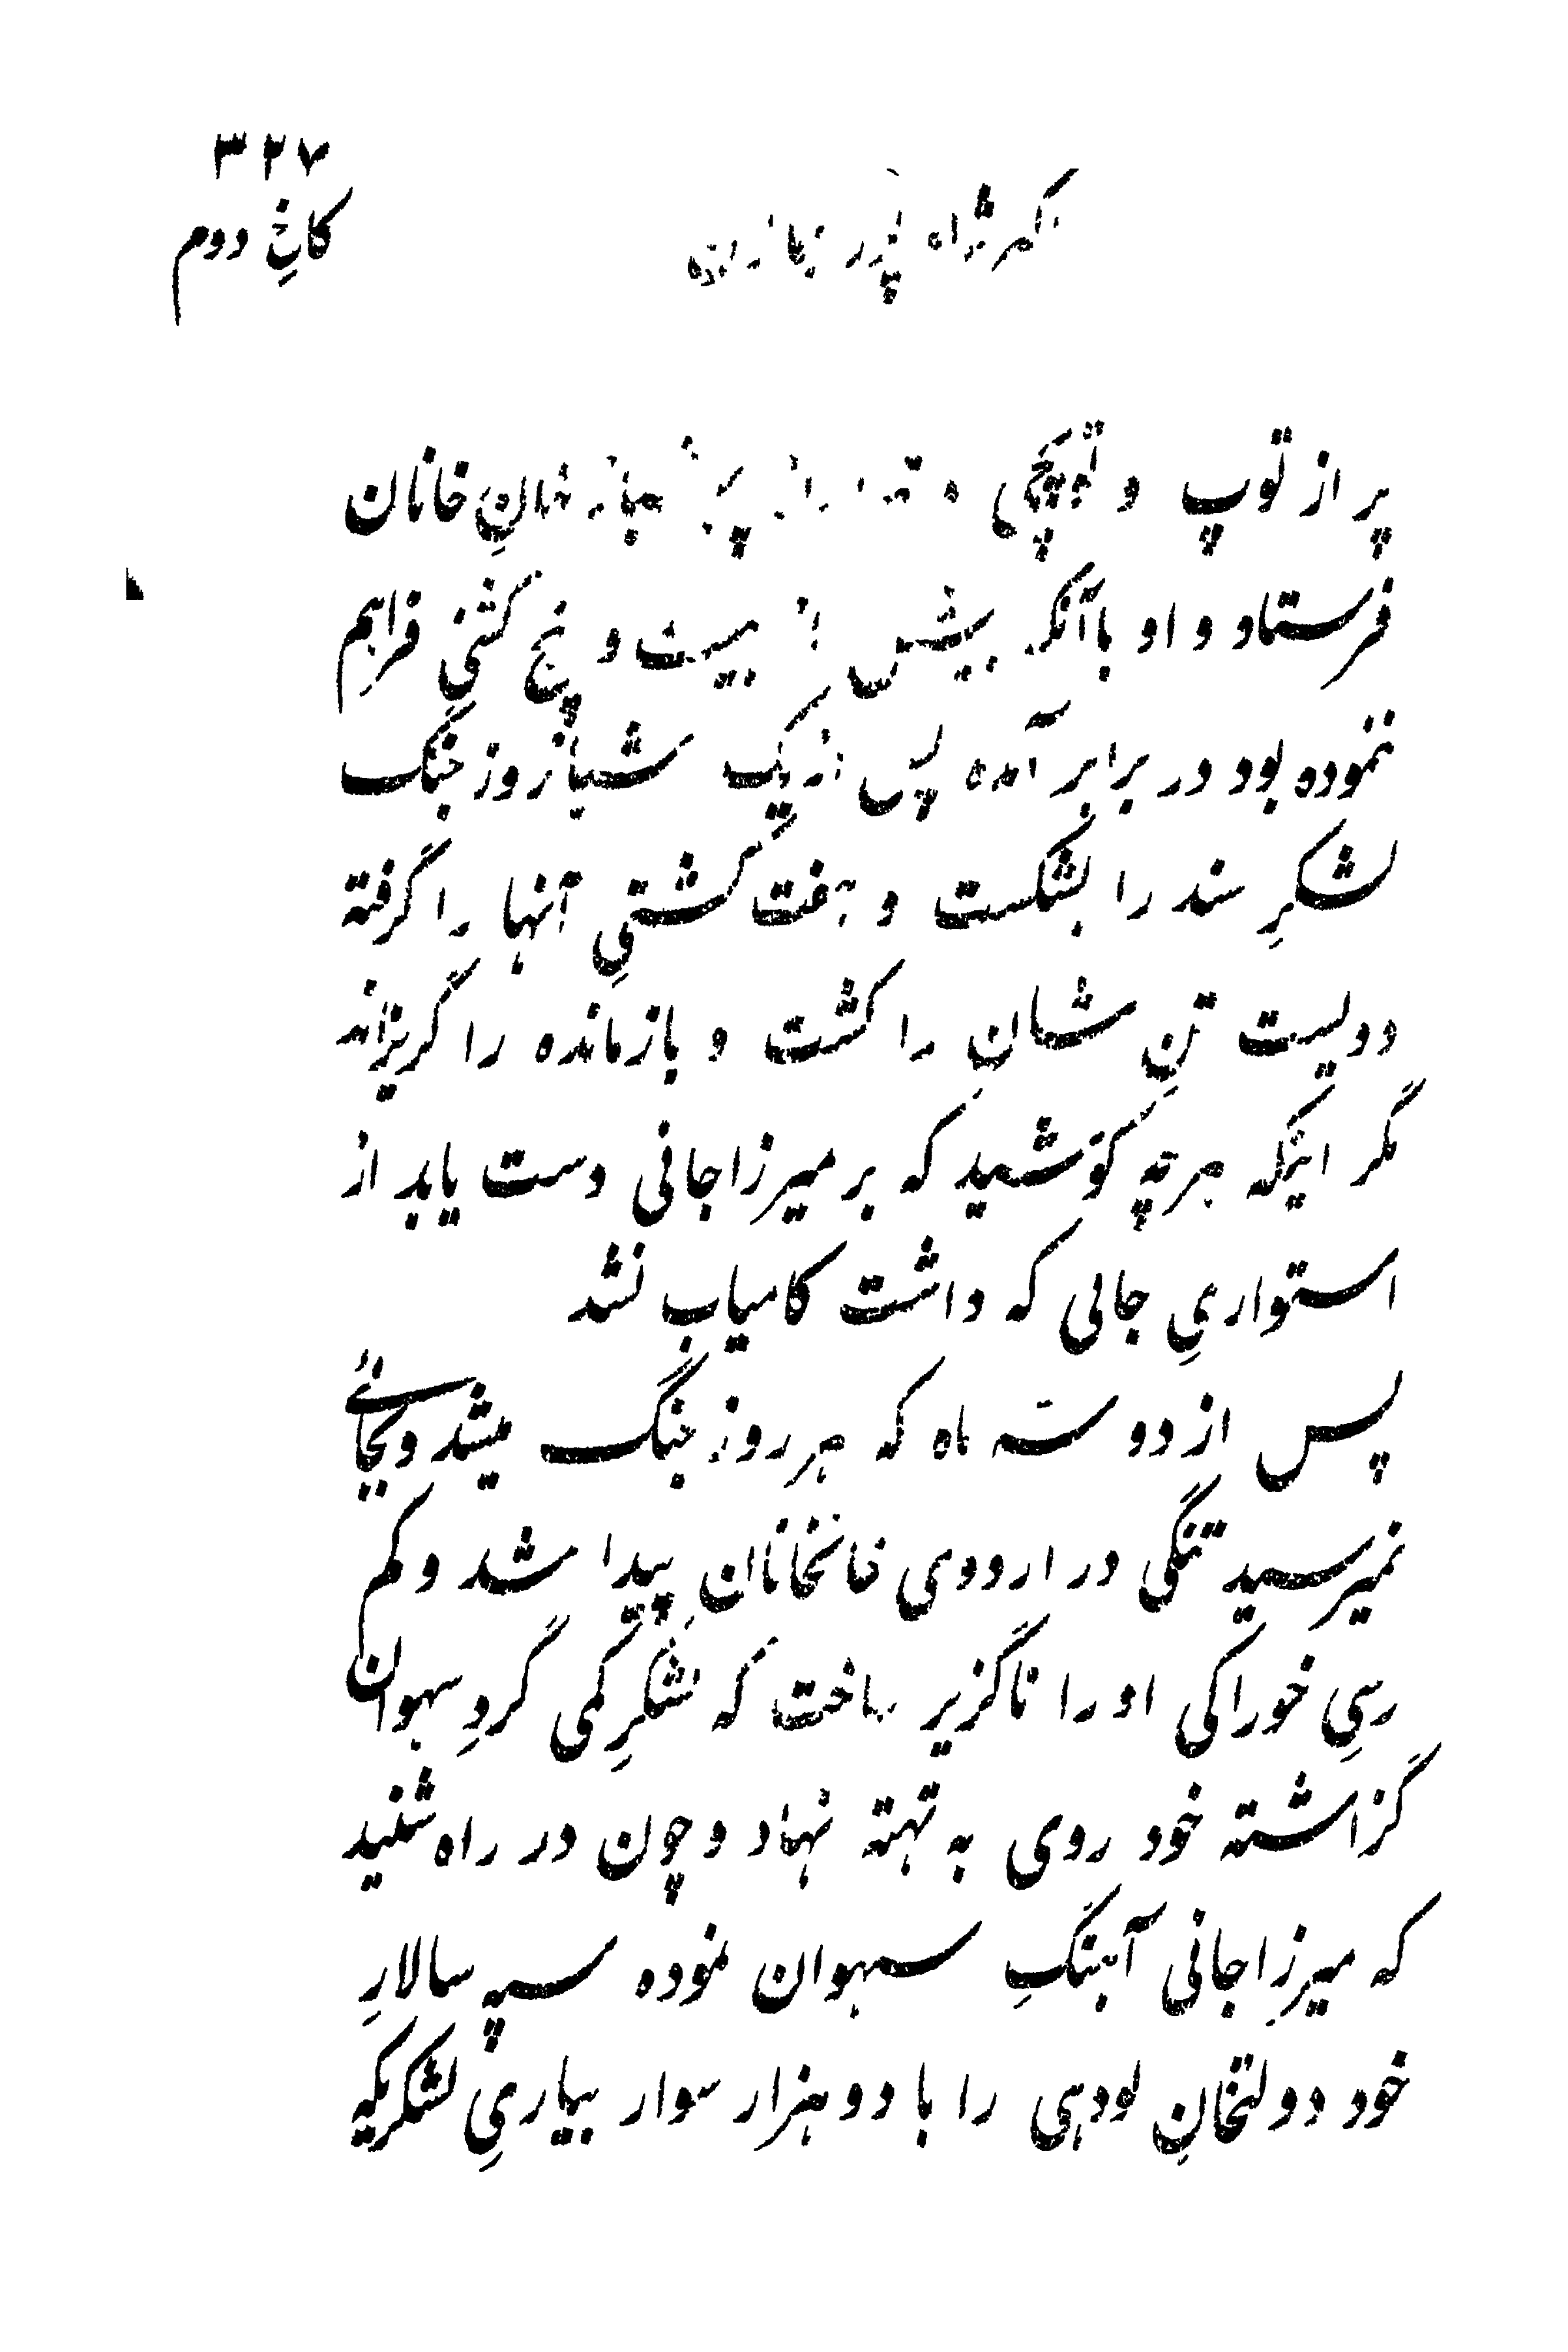 ۳۲۷
کاخِ دوم
پر از توپ و توپچی خانان
فرستاد و او با آنکه بیش از بیست و پنج کشتی فراهم
ننموده بود در برابر آمده پس از یک شبانروز جنگ
لشکرِ سند را بشکست و هفت کشتیِ آنها را گرفته
دویست تنِ شان را کشت و بازمانده را گریزاند
مگر اینکه هر چه کوشید که بر میرزا جانی دست یابد از
استواریِ جائی که داشت کامیاب نشد
پس از دو سه ماه که هر روز جنگ میشد و بجائے
نمیرسید تنگی در اردوی خانخانان پیدا شد و کم
رسیِ خوراکی او را ناگزیر ساخت که لشکرِ کمی گردِ سهوان
گزاشته خود روی به تهته نهاد و چون در راه شنید
که میرزا جانی آهنگِ سهوان نموده سپه سالارِ
خود دولتخانِ لودهی را با دو هزار سوار بیاریِ لشکریکه